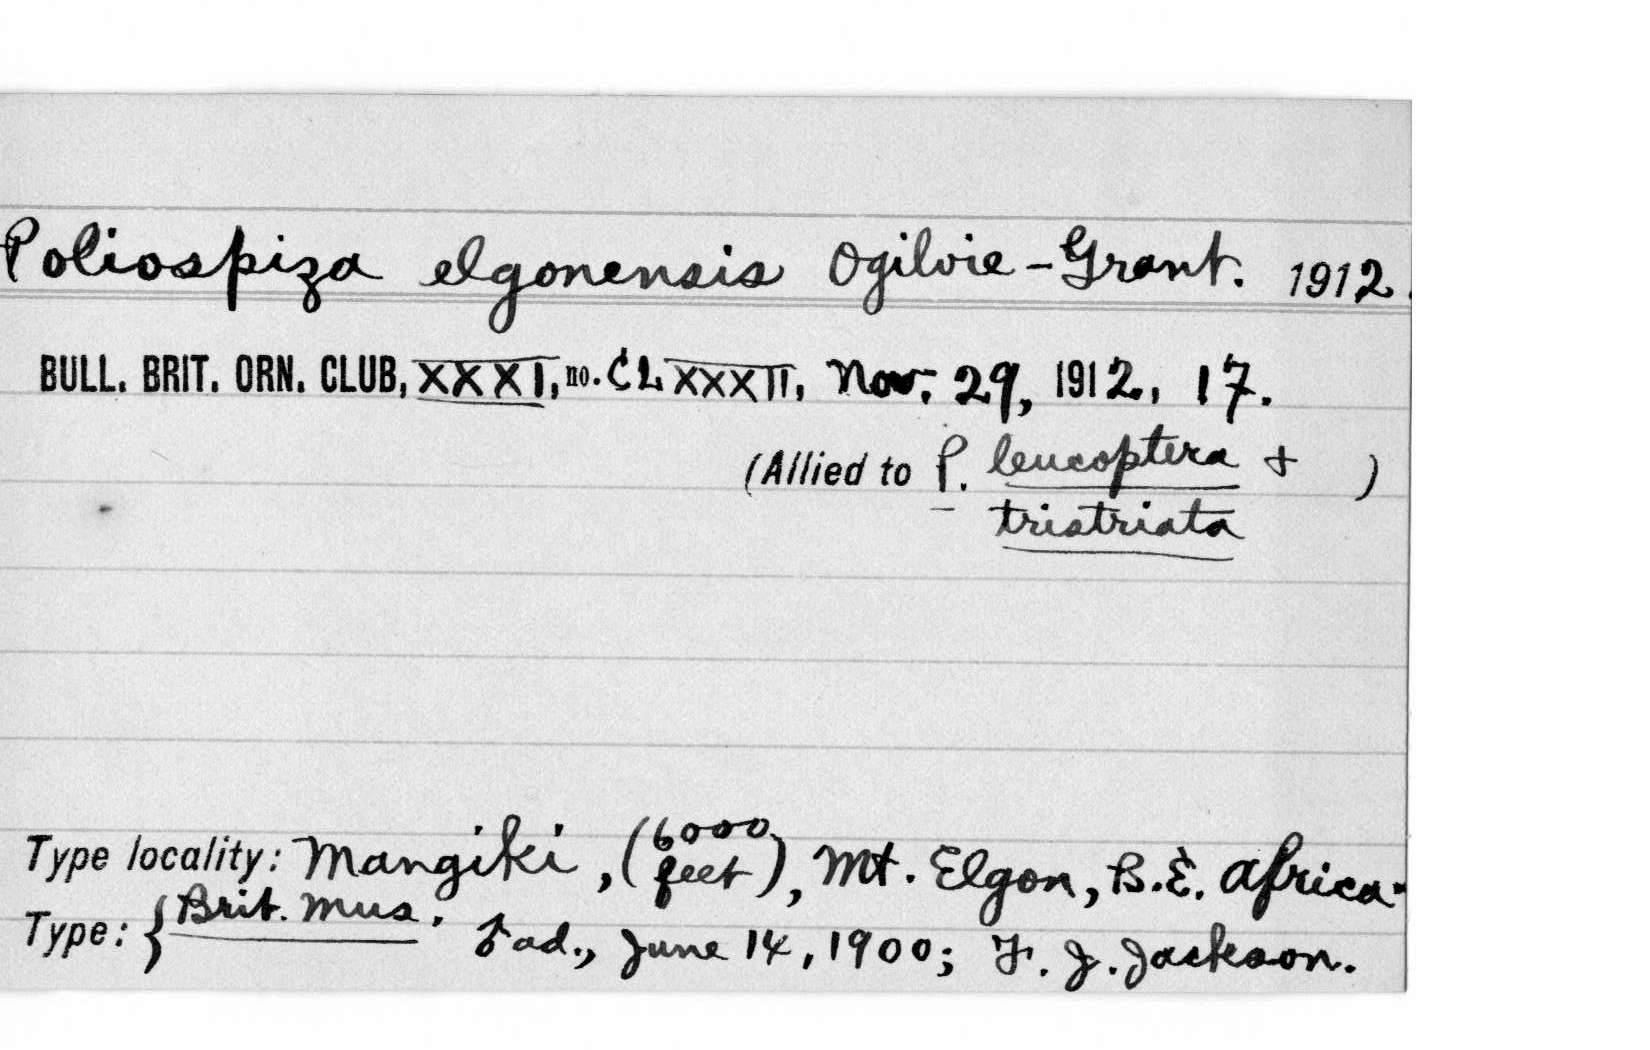 Poliospiza elgonensis Ogilvie-Grant. 1912.
BULL. BRIT. ORN. CLUB, XXXI, no. CLXXXII, Nov. 29, 1912, 17.
(Allied to P. leucoptera + )
tristriata
Type locality: Mangiki, (6000 feet), Mt. Elgon, B.E. Africa.
Type: {Brit. Mus. ♂ ad., June 14, 1900; F. J. Jackson.